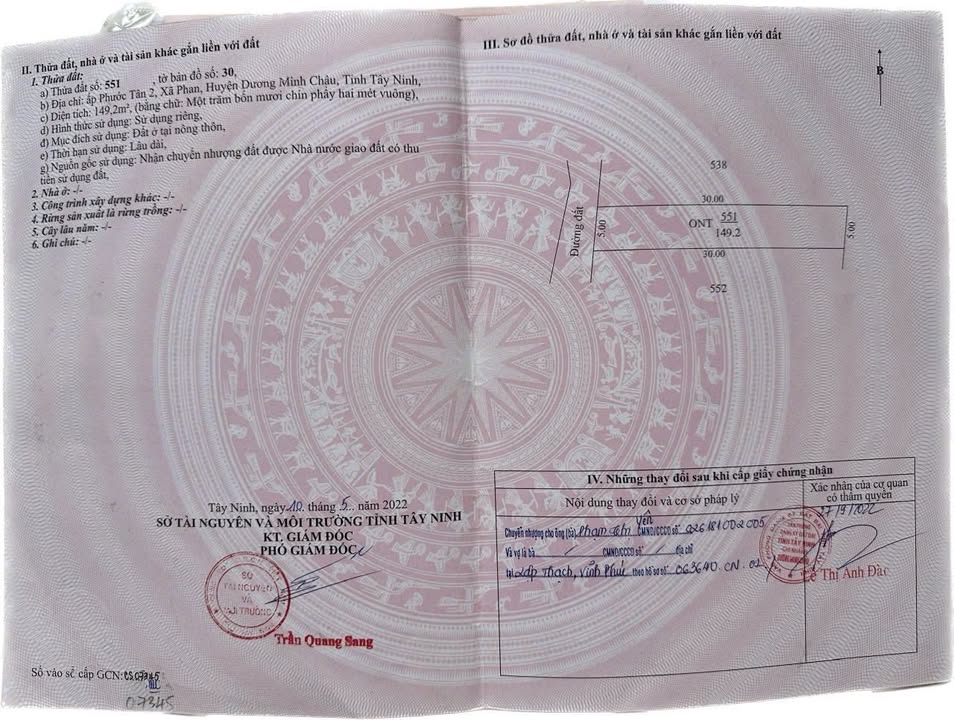 II. Thửa đất, nhà ở và tài sản khác gắn liền với đất
1. Thửa đất:
a) Thửa đất số: 551 , tờ bản đồ số: 30,
b) Địa chỉ: ấp Phước Tân 2, Xã Phan, Huyện Dương Minh Châu, Tỉnh Tây Ninh,
c) Diện tích: 149,2m², (bằng chữ: Một trăm bốn mươi chín phẩy hai mét vuông),
d) Hình thức sử dụng: Sử dụng riêng,
đ) Mục đích sử dụng: Đất ở tại nông thôn,
e) Thời hạn sử dụng: Lâu dài,
g) Nguồn gốc sử dụng: Nhận chuyển nhượng đất được Nhà nước giao đất có thu
tiền sử dụng đất,
2. Nhà ở: -/-
3. Công trình xây dựng khác: -/-
4. Rừng sản xuất là rừng trồng: -/-
5. Cây lâu năm: -/-
6. Ghi chú: -/-
Tây Ninh, ngày 10 tháng 5 năm 2022
SỞ TÀI NGUYÊN VÀ MÔI TRƯỜNG TỈNH TÂY NINH
KT. GIÁM ĐỐC
PHÓ GIÁM ĐỐC
SỞ
TÀI NGUYÊN
VÀ
MÔI TRƯỜNG
Trần Quang Sang
Số vào sổ cấp GCN:
07345
III. Sơ đồ thửa đất, nhà ở và tài sản khác gắn liền với đất
B
538
30.00
Đường đất
5.00
ONT 551
149.2
5.00
30.00
552
IV. Những thay đổi sau khi cấp giấy chứng nhận
Nội dung thay đổi và cơ sở pháp lý
Xác nhận của cơ quan
có thẩm quyền
Chuyển nhượng cho ông (bà) Phạm Yến CMND/CCCD số 026181002005
Và vợ là bà / CMND/CCCD số / địa chỉ
tại Lập Thạch, Vĩnh Phúc theo hồ sơ số 063640.CN.02
TỈNH TÂY NINH
Lê Thị Anh Đào